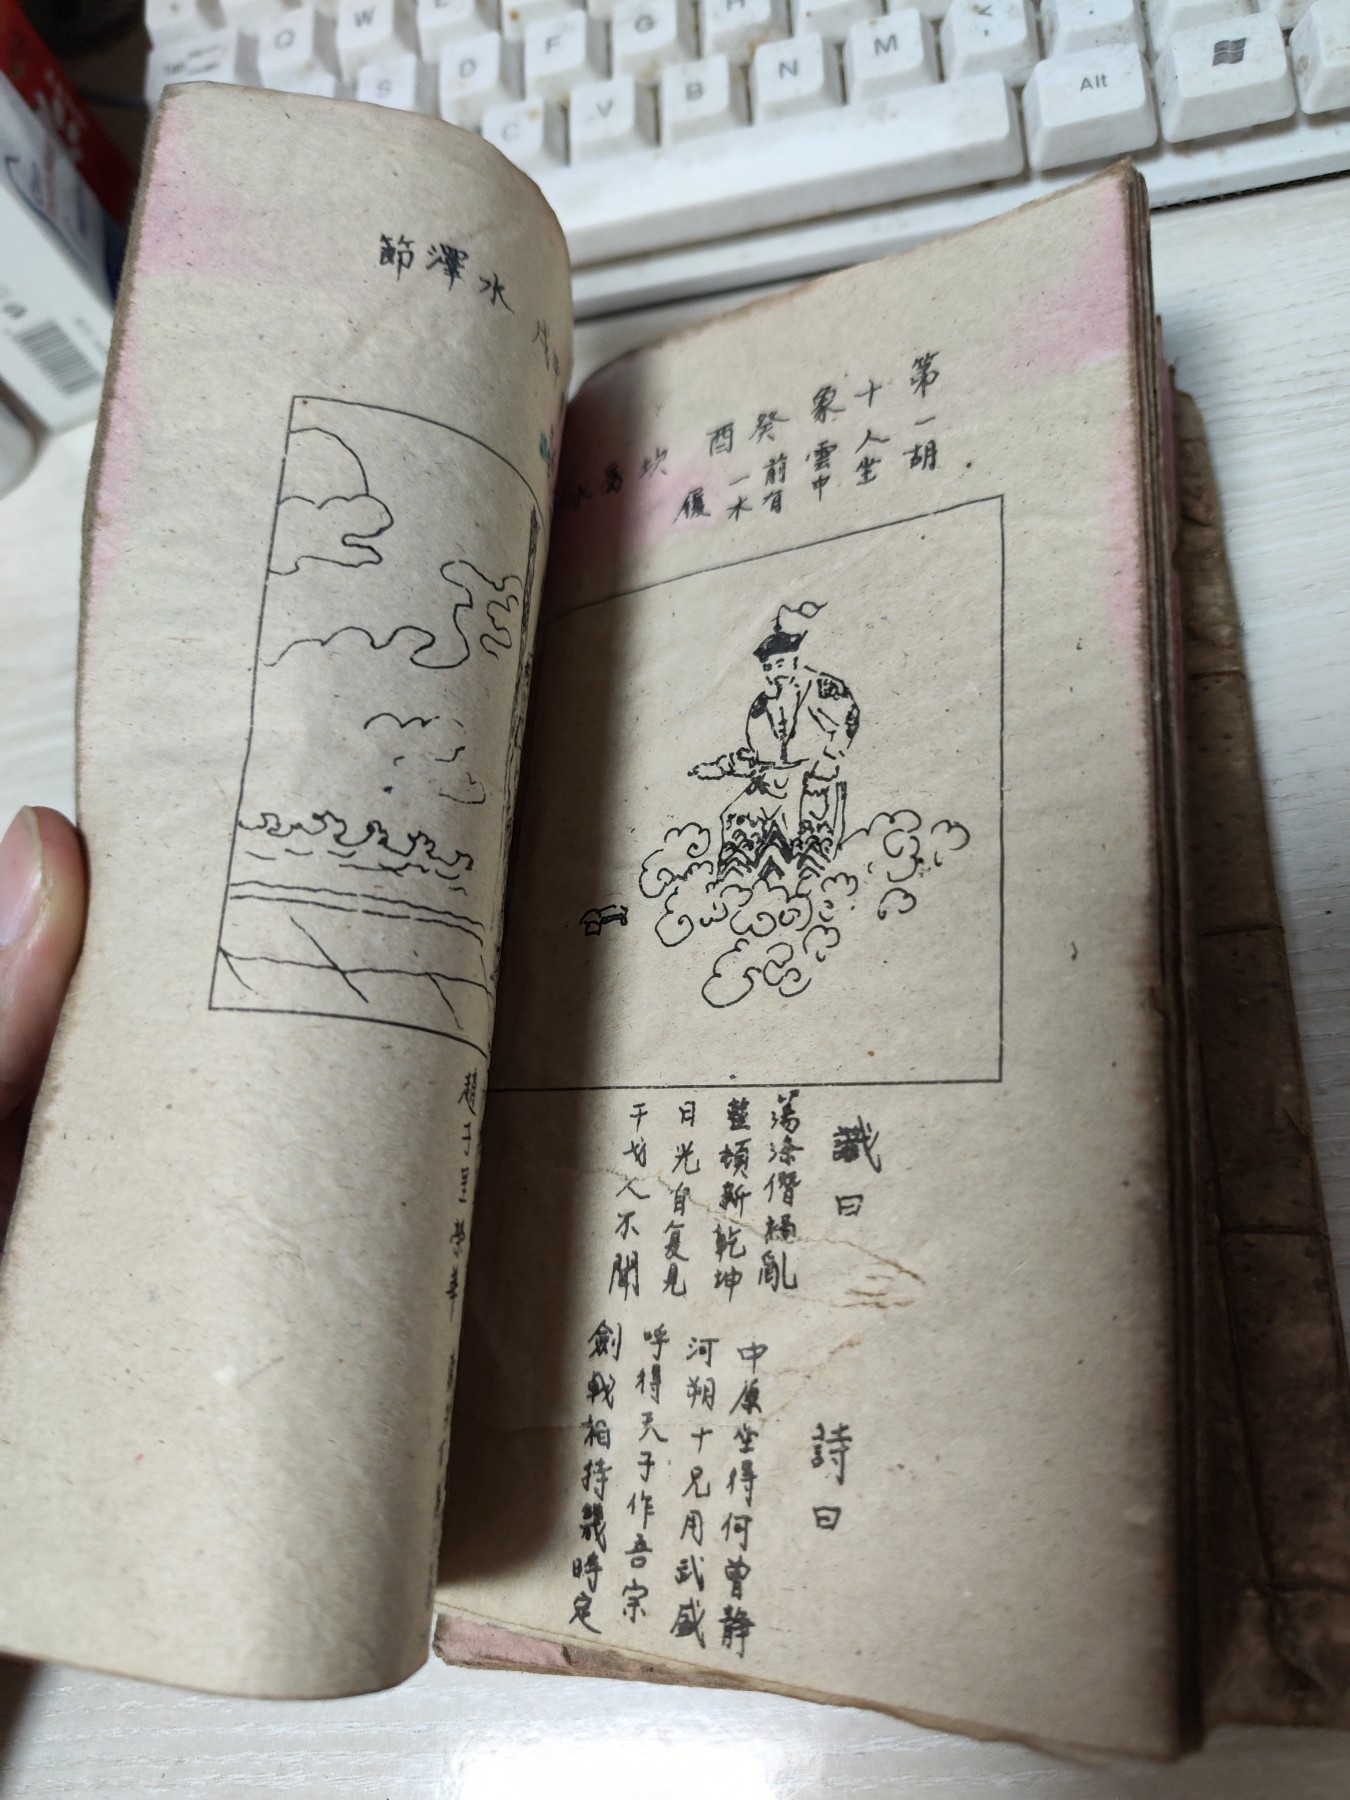 Q W
S D F G
C V B N M <
Alt
第十象
癸酉
坎為水
一胡
人坐
雲中
前有
一木
履
讖曰
蕩滌僭禍亂
整頓新乾坤
日光自复見
干戈人不聞
詩曰
中原坐得何曾靜
河朔十兄用武盛
呼得天子作吾宗
劍戟相持幾時定
水澤節